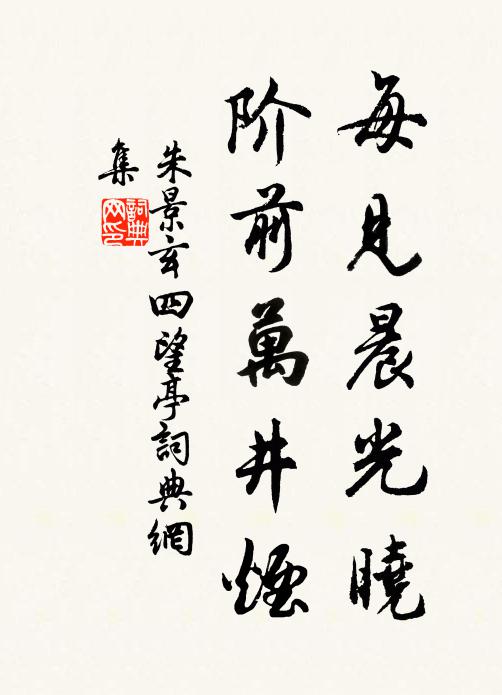 每見晨光曉
阶前萬井煙
朱景玄四望亭詞典網
集
詞典網印